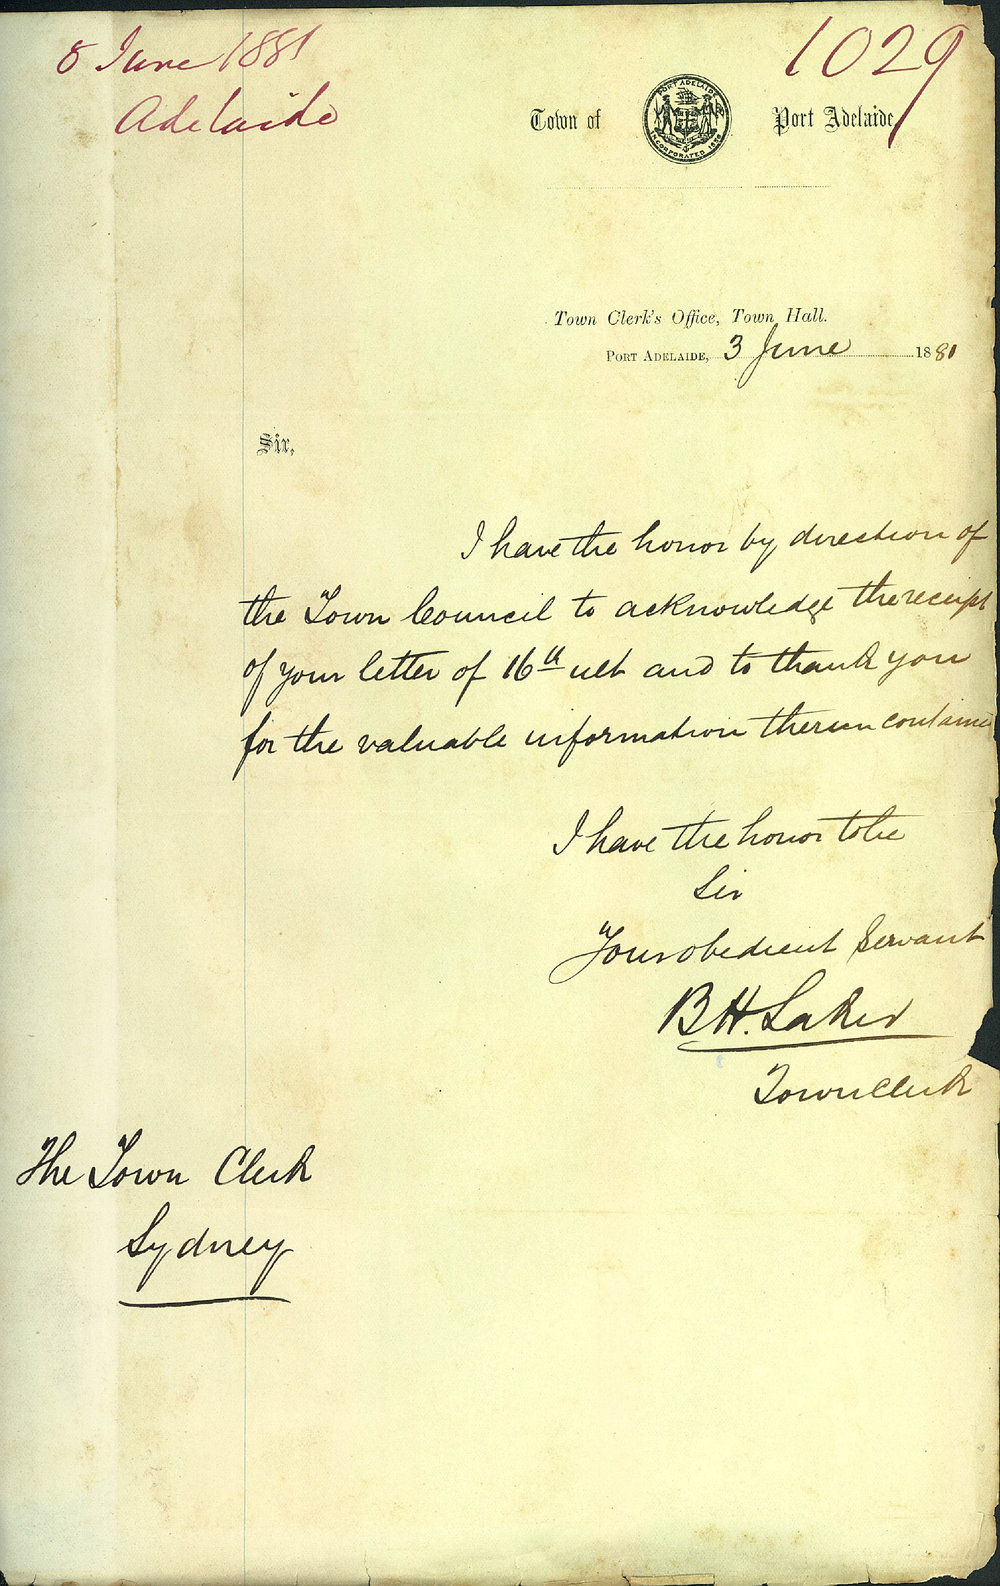 8 June 1881
Adelaide
1029
Town of
PORT ADELAIDE
INCORPORATED 1856
Port Adelaide
Town Clerk's Office, Town Hall.
PORT ADELAIDE, 3 June 1881
Sir,
I have the honor by direction of
the Town Council to acknowledge the receipt
of your letter of 16th ult and to thank you
for the valuable information therein contained
I have the honor to be
Sir
Your obedient Servant
B H. Laker
Town Clerk
The Town Clerk
Sydney